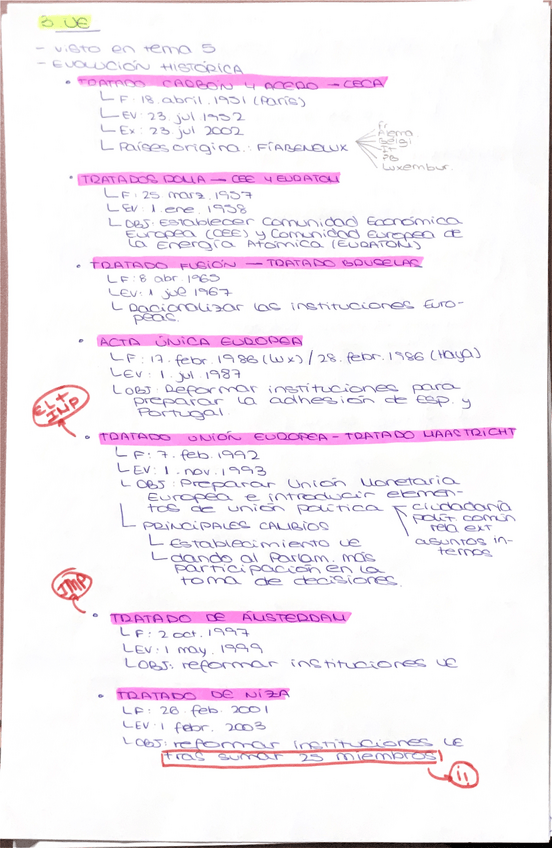 3 UE
- visto en tema 5
- EVOLUCIÓN HISTÓRICA
• TRATADO CARBÓN Y ACERO - CECA
F: 18. abril. 1951 (París)
EV: 23. jul 1952
Ex: 23. jul 2002
Países origina.: FIABENELUX
Fr
Alema.
Belgi
It
PB
Luxembur.
• TRATADOS ROMA - CEE Y EURATOM
F: 25 marz. 1957
EV: 1 ene. 1958
OBJ: Establecer Comunidad Económica
Europea (CEE) y Comunidad Europea de
la Energía Atómica (EURATOM)
• TRATADO FUSIÓN - TRATADO BRUSELAS
F: 8 abr 1965
EV: 1 jul 1967
Racionalizar las instituciones Euro-
peas.
• ACTA ÚNICA EUROPEA
F: 17. febr. 1986 (Lux) / 28. febr. 1986 (Haya)
EV: 1. jul. 1987
OBJ: Reformar instituciones para
preparar la adhesión de Esp. y
Portugal.
EL +
IMP
• TRATADO UNIÓN EUROPEA - TRATADO MAASTRICHT
F: 7. feb. 1992
EV: 1. nov. 1993
OBJ: Preparar Unión Monetaria
Europea e introducir elemen-
tos de unión política
ciudadanía
polít. común
rela ext
asuntos in-
ternos
PRINCIPALES CAMBIOS
Establecimiento UE
dando al Parlam. más
participación en la
toma de decisiones.
IMP
• TRATADO DE ÁMSTERDAM
F: 2 oct. 1997
EV: 1 may. 1999
OBJ: reformar instituciones UE
• TRATADO DE NIZA
F: 26. feb. 2001
EV: 1 febr. 2003
OBJ: reformar instituciones UE
tras sumar 25 miembros
¡¡